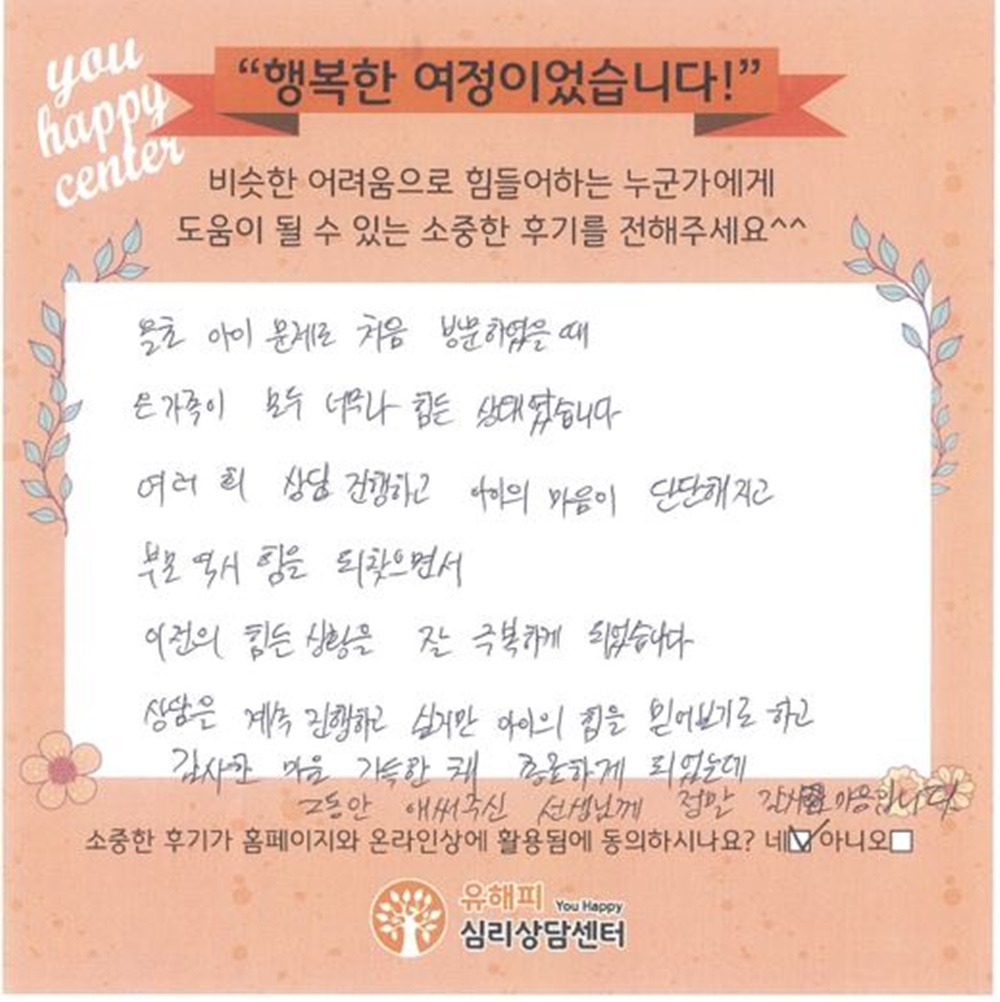 you
happy
center
“행복한 여정이었습니다!”
비슷한 어려움으로 힘들어하는 누군가에게
도움이 될 수 있는 소중한 후기를 전해주세요^^
올초 아이 문제로 처음 방문하였을 때
온가족이 모두 너무나 힘든 상태였습니다
여러 회 상담 진행하고 아이의 마음이 단단해지고
부모 역시 힘을 되찾으면서
이전의 힘든 상황을 잘 극복하게 되었습니다
상담은 계속 진행하고 싶지만 아이의 힘을 믿어보기로 하고
감사한 마음 가득한 채 종료하게 되었는데
그동안 애써주신 선생님께 정말 감사 마음입니다
소중한 후기가 홈페이지와 온라인상에 활용됨에 동의하시나요? 네☑ 아니오□
유해피 You Happy
심리상담센터